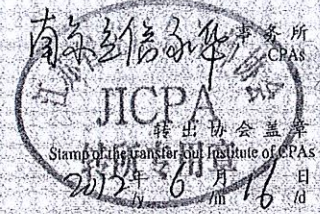 南京立信永华 事务所
CPAs
江苏 协会
JICPA
转出协会盖章
Stamp of the transfer-out Institute of CPAs
转所专用章
2012年 6月 16日
/y /m /d